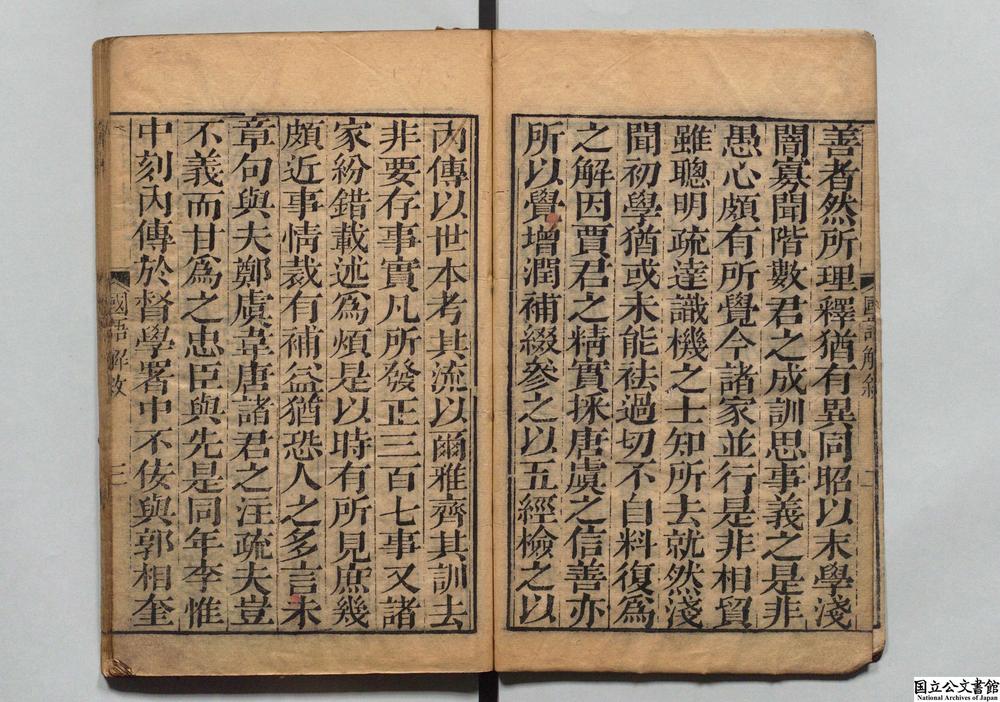 善者然所理釋猶有異同昭以末學淺
闇寡聞階數君之成訓思事義之是非
愚心頗有所覺今諸家並行是非相貿
雖聰明疏達識機之士知所去就然淺
聞初學猶或未能袪過切不自料復爲
之解因賈君之精實採唐虞之信善亦
所以覺增潤補綴參之以五經檢之以
國語解敘
內傳以世本考其流以爾雅齊其訓去
非要存事實凡所發正三百七事又諸
家紛錯載述爲煩是以時有所見庶幾
頗近事情裁有補益猶恐人之多言未
章句與夫鄭虞韋唐諸君之注疏夫豈
不義而甘爲之忠臣與先是同年李惟
中刻內傳於督學署中不佞與郭相奎
國語解敘
三
国立公文書館
National Archives of Japan